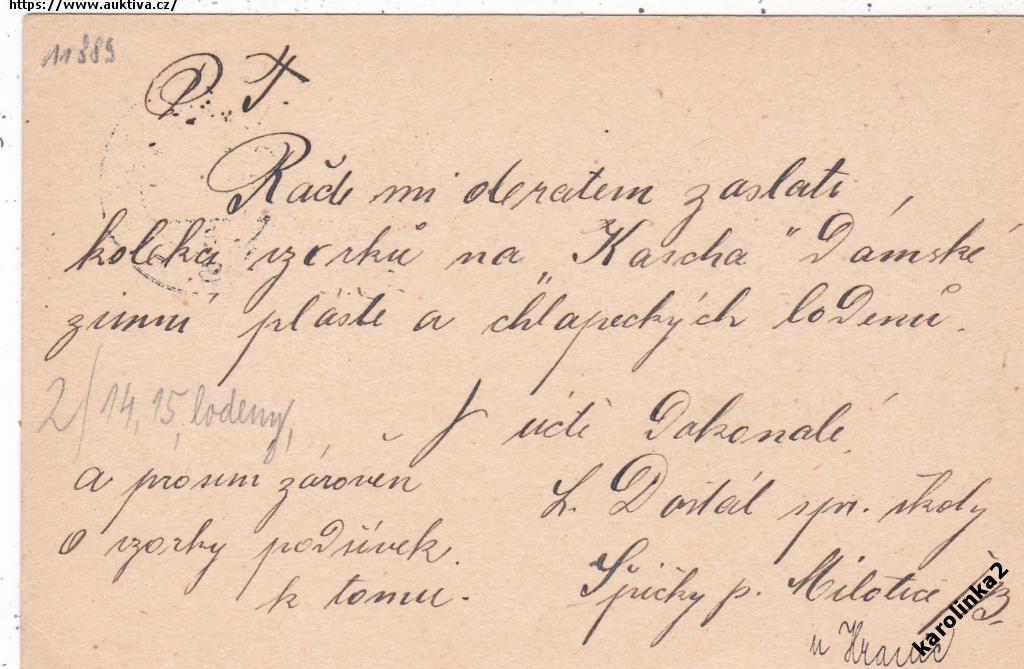 https://www.auktiva.cz/
11889
P. T.
Račte mi obratem zaslati
kolekci vzorků na „Kascha" Dámské
zimní pláště a chlapeckých lodenů.
2/14, 15, lodeny,
V úctě Dokonalé
a prosím zároveň
L. Dostál spr. školy
o vzorky podšívek
Špičky p. Milotice
k tomu.
u Hranic
karolinka2